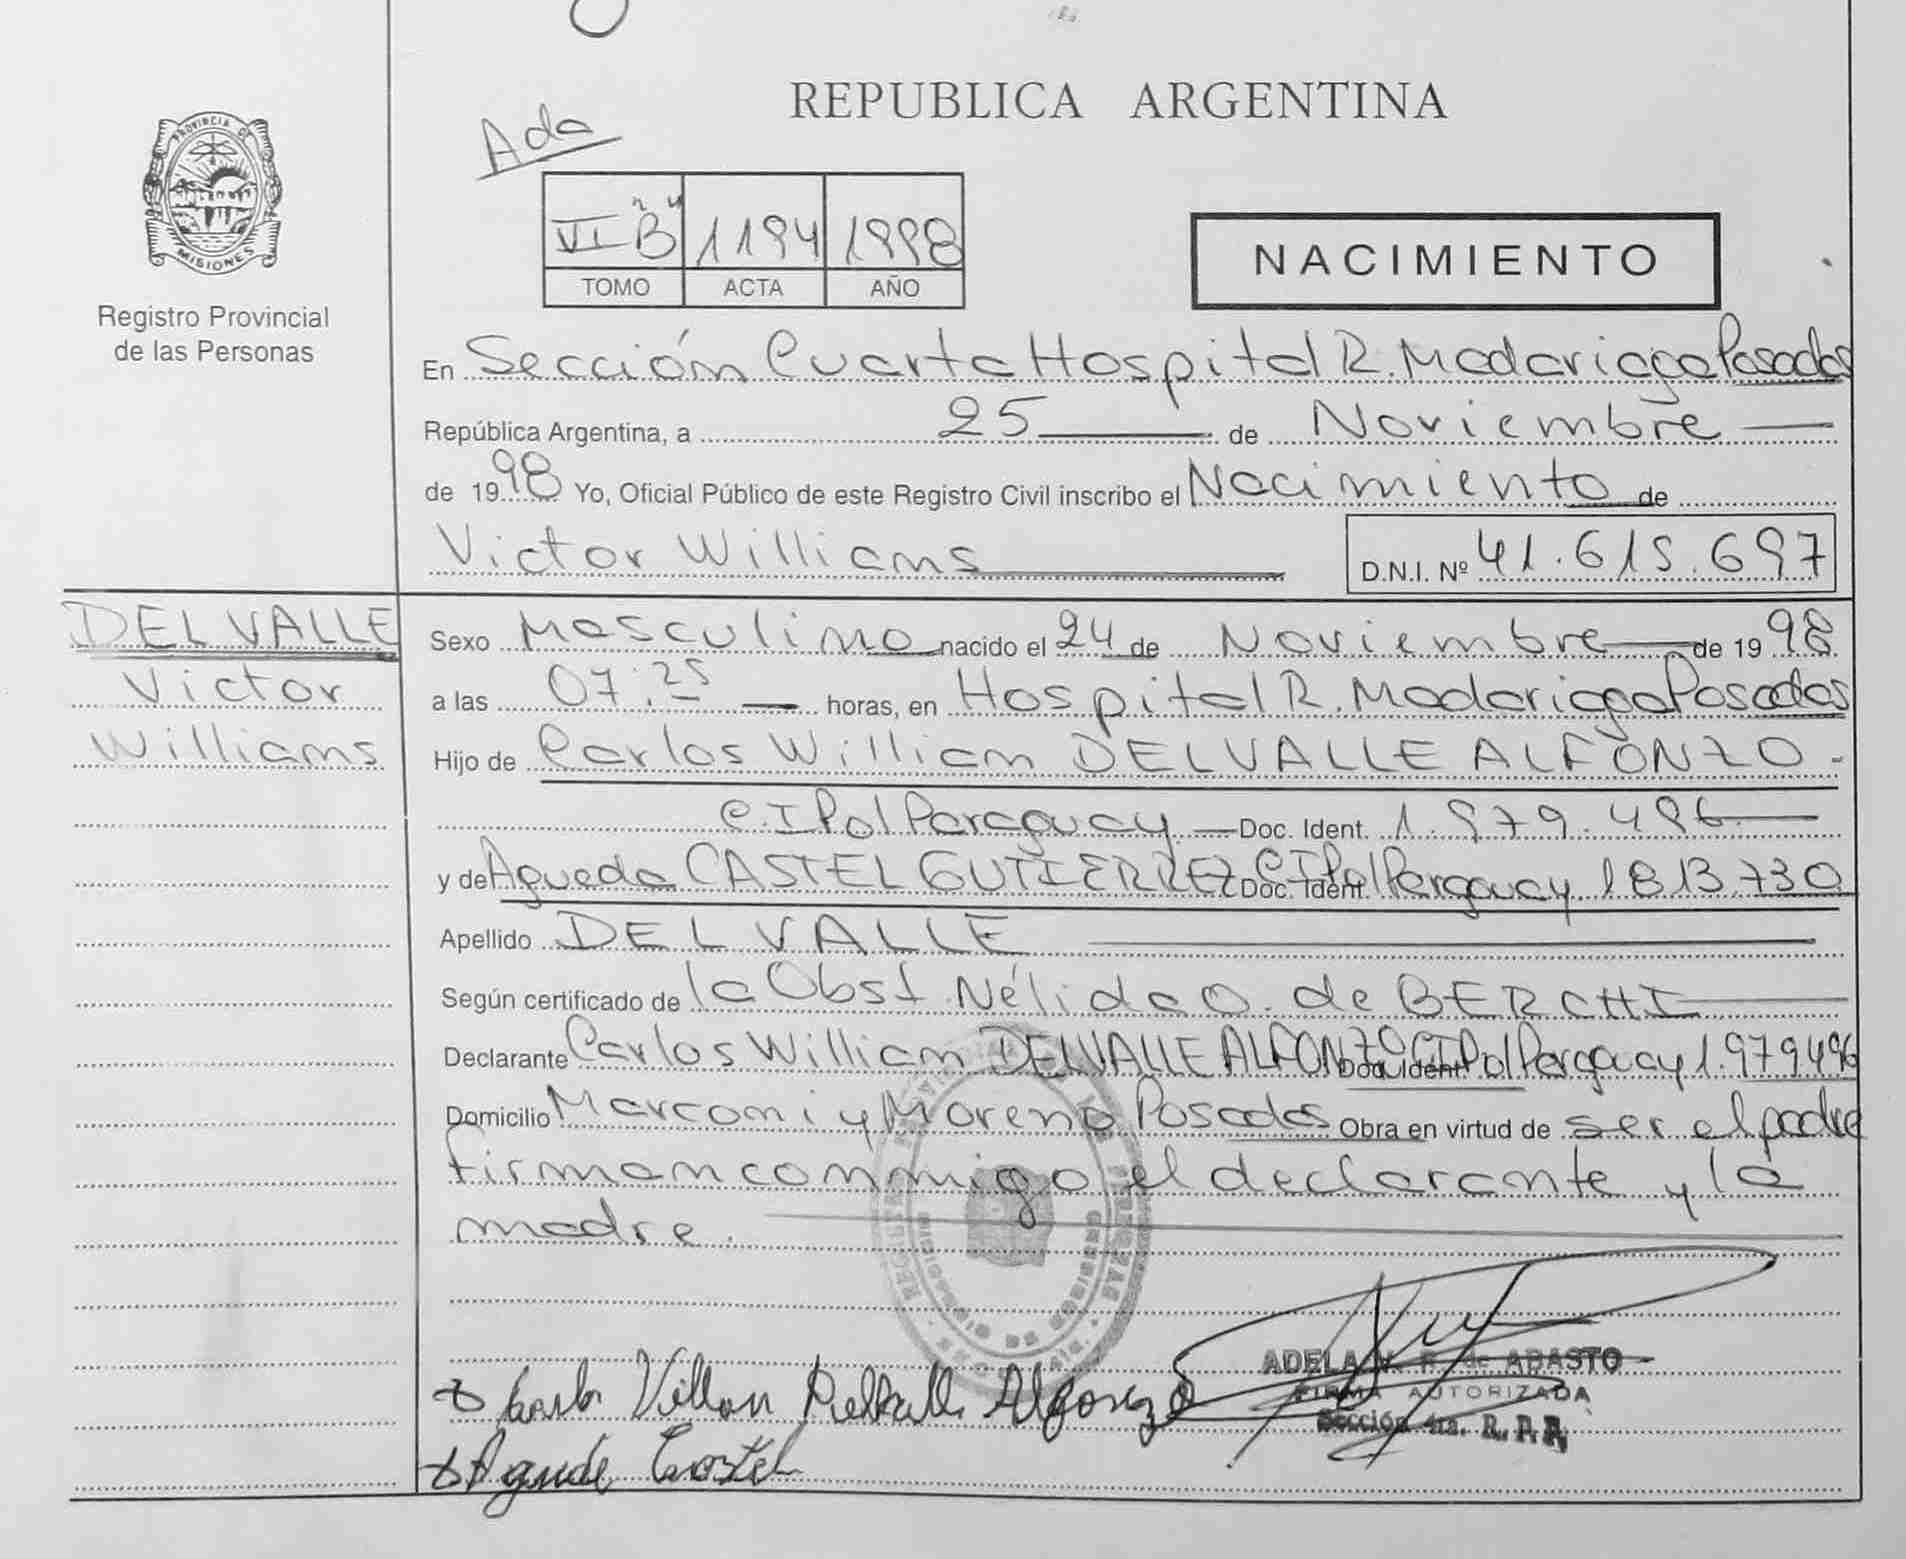 REPUBLICA ARGENTINA
Ada
PROVINCIA DE
MISIONES
Registro Provincial
de las Personas
VI "B" 1194 1998
TOMO ACTA AÑO
NACIMIENTO
En Sección Cuarta Hospital R. Madariaga Posadas
República Argentina, a 25 de Noviembre
de 1998 Yo, Oficial Público de este Registro Civil inscribo el Nacimiento de
Victor Williams D.N.I. Nº 41.615.697
DEL VALLE
Victor
Williams
Sexo Masculino nacido el 24 de Noviembre de 1998
a las 07:25 horas, en Hospital R. Madariaga Posadas
Hijo de Carlos William DELVALLE ALFONZO
C.I Pol Paraguay Doc. Ident. 1.979.496
y de Agueda CASTEL GUTIERREZ Doc. Ident. C I Pol Paraguay 1813.730
Apellido DEL VALLE
Según certificado de la Obst. Nélida O. de BERCHI
Declarante Carlos William DELVALLE ALFONZO Doc. Ident. CI Pol Paraguay 1.979496
Domicilio Marconi y Moreno Posadas Obra en virtud de ser el padre
firman conmigo el declarante y la
madre.
ADELA de ABASTO
FIRMA AUTORIZADA
Sección 4ta. R. P. P.
Alfonzo
Castel